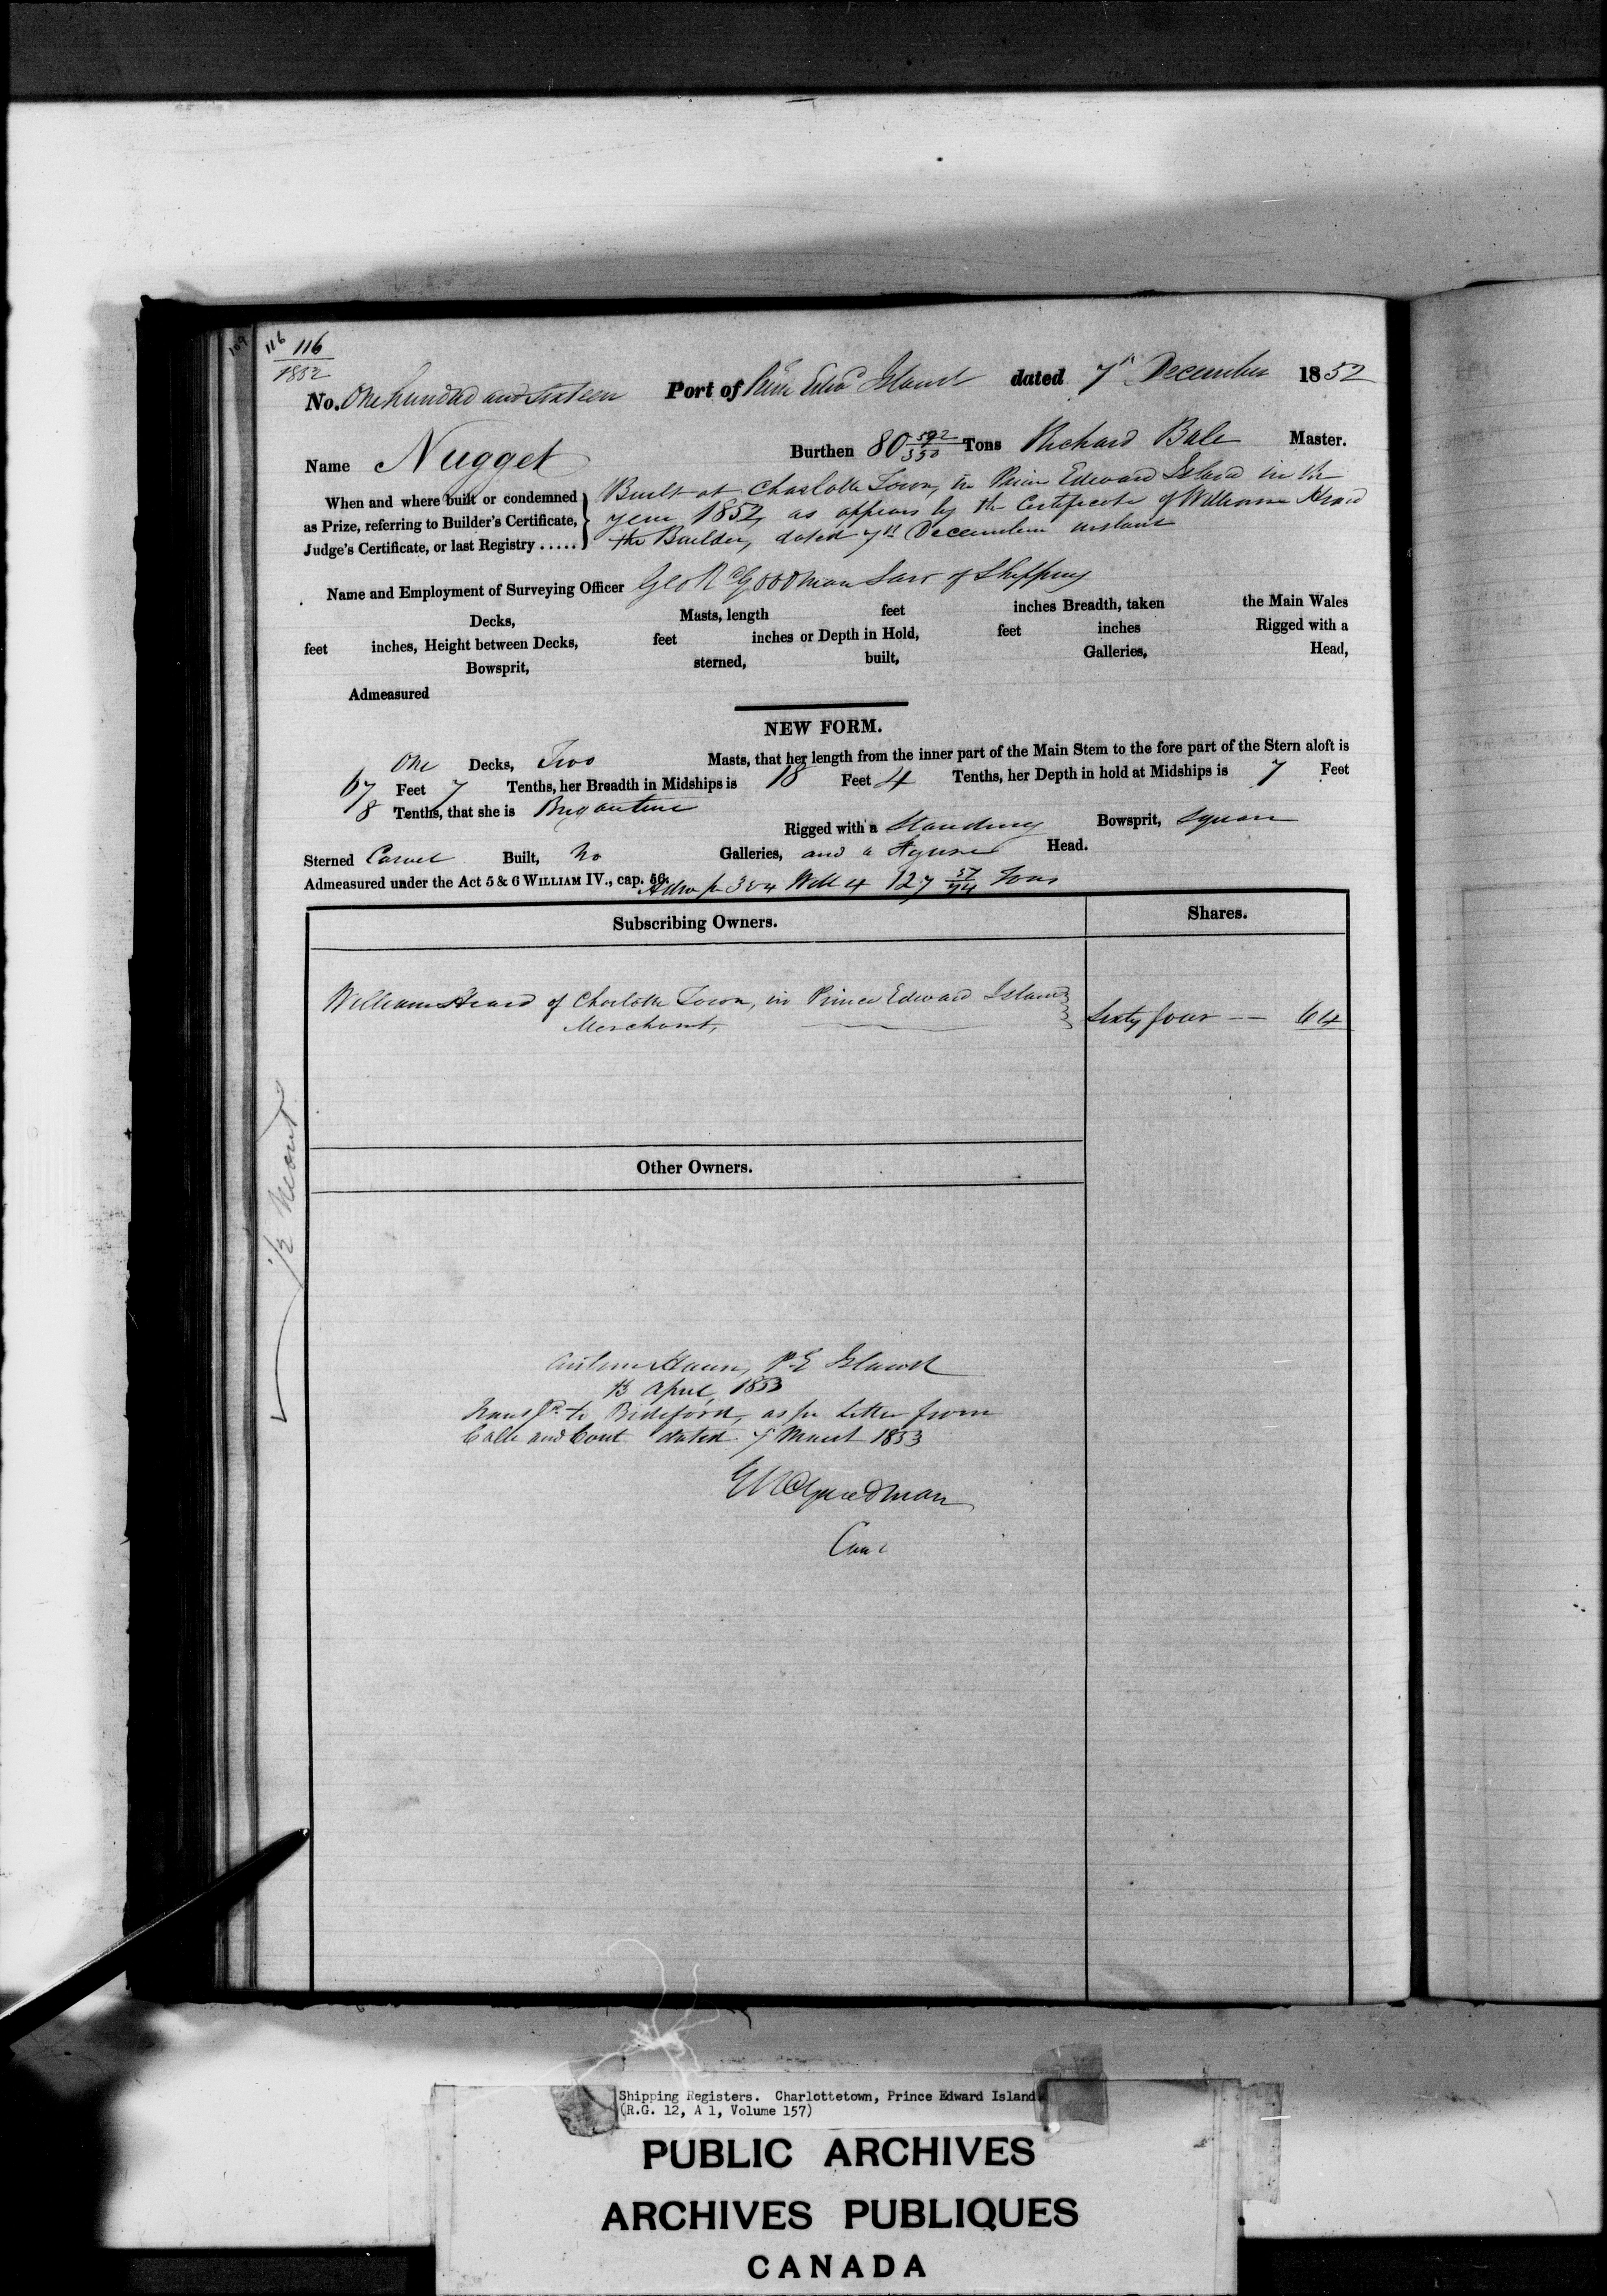 109 116 116
1852
No. One hundred and sixteen Port of Prin Edwd Island dated 7th December 1852
Name Nugget Burthen 80 592/3500 Tons Richard Bale Master.
When and where built or condemned as Prize, referring to Builder's Certificate, Judge's Certificate, or last Registry .....
Built at Charlotte Town, in Prince Edward Island in the
year 1852, as appears by the Certificate of William Heard
the Builder, dated 7th December instant
Name and Employment of Surveying Officer Geo R Goodman Surr of Shipping
Decks, Masts, length feet inches Breadth, taken the Main Wales
feet inches, Height between Decks, feet inches or Depth in Hold, feet inches Rigged with a
Bowsprit, sterned, built, Galleries, Head,
Admeasured
NEW FORM.
One Decks, Two Masts, that her length from the inner part of the Main Stem to the fore part of the Stern aloft is
67 Feet 7 Tenths, her Breadth in Midships is 18 Feet 4 Tenths, her Depth in hold at Midships is 7 Feet
8 Tenths, that she is Brigantine
Rigged with a Standing Bowsprit, Square
Sterned Carvel Built, No Galleries, and a Figure Head.
Admeasured under the Act 5 & 6 WILLIAM IV., cap. 56.
3 & 4 Will 4 127 57/94 Tons
Subscribing Owners. Shares.
William Heard of Charlotte Town, in Prince Edward Island
Merchant, Sixty four — 64
Other Owners.
P. E Island
13 April, 1853
Transfd to Bideford, as per Letter from
dated 7 March 1853
G R Goodman
Cont
Shipping Registers. Charlottetown, Prince Edward Island
(R.G. 12, A 1, Volume 157)
PUBLIC ARCHIVES
ARCHIVES PUBLIQUES
CANADA